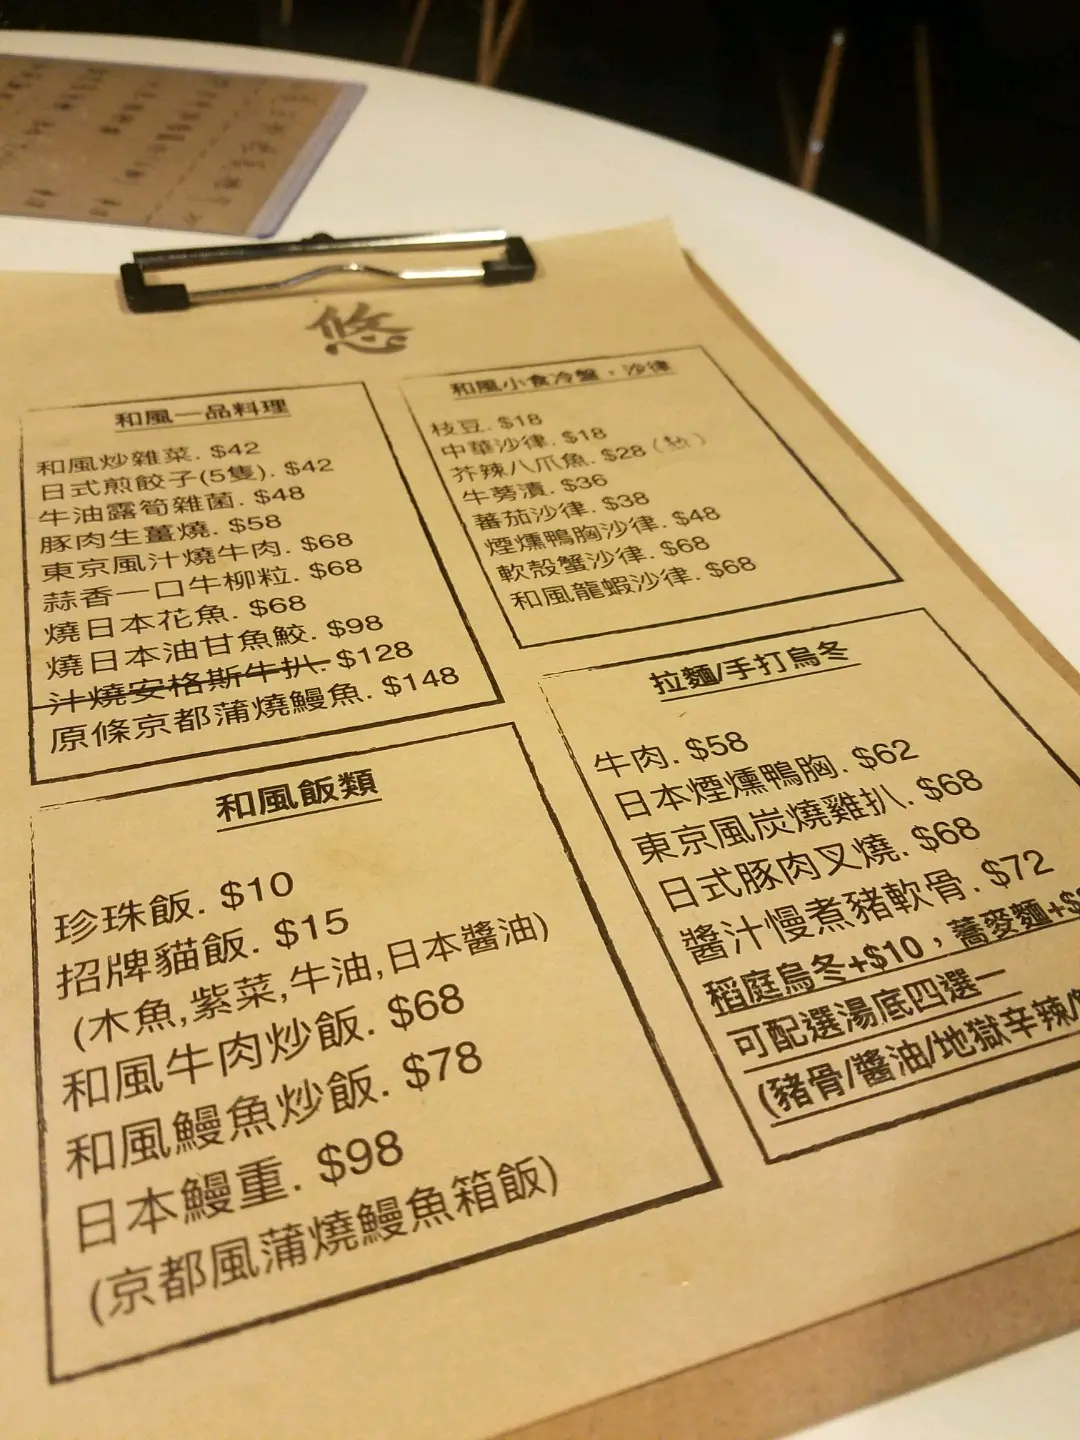 悠
和風一品料理
和風炒雜菜. $42
日式煎餃子(5隻). $42
牛油露筍雜菌. $48
豚肉生薑燒. $58
東京風汁燒牛肉. $68
蒜香一口牛柳粒. $68
燒日本花魚. $68
燒日本油甘魚鮫. $98
汁燒安格斯牛扒. $128
原條京都蒲燒鰻魚. $148
和風小食冷盤・沙律
枝豆. $18
中華沙律. $18
芥辣八爪魚. $28
牛蒡漬. $36
蕃茄沙律. $38
煙燻鴨胸沙律. $48
軟殼蟹沙律. $68
和風龍蝦沙律. $68
和風飯類
珍珠飯. $10
招牌貓飯. $15
(木魚,紫菜,牛油,日本醬油)
和風牛肉炒飯. $68
和風鰻魚炒飯. $78
日本鰻重. $98
(京都風蒲燒鰻魚箱飯)
拉麵/手打烏冬
牛肉. $58
日本煙燻鴨胸. $62
東京風炭燒雞扒. $68
日式豚肉叉燒. $68
醬汁慢煮豬軟骨. $72
稻庭烏冬+$10，蕎麥麵+$
可配選湯底四選一
(豬骨/醬油/地獄辛辣/